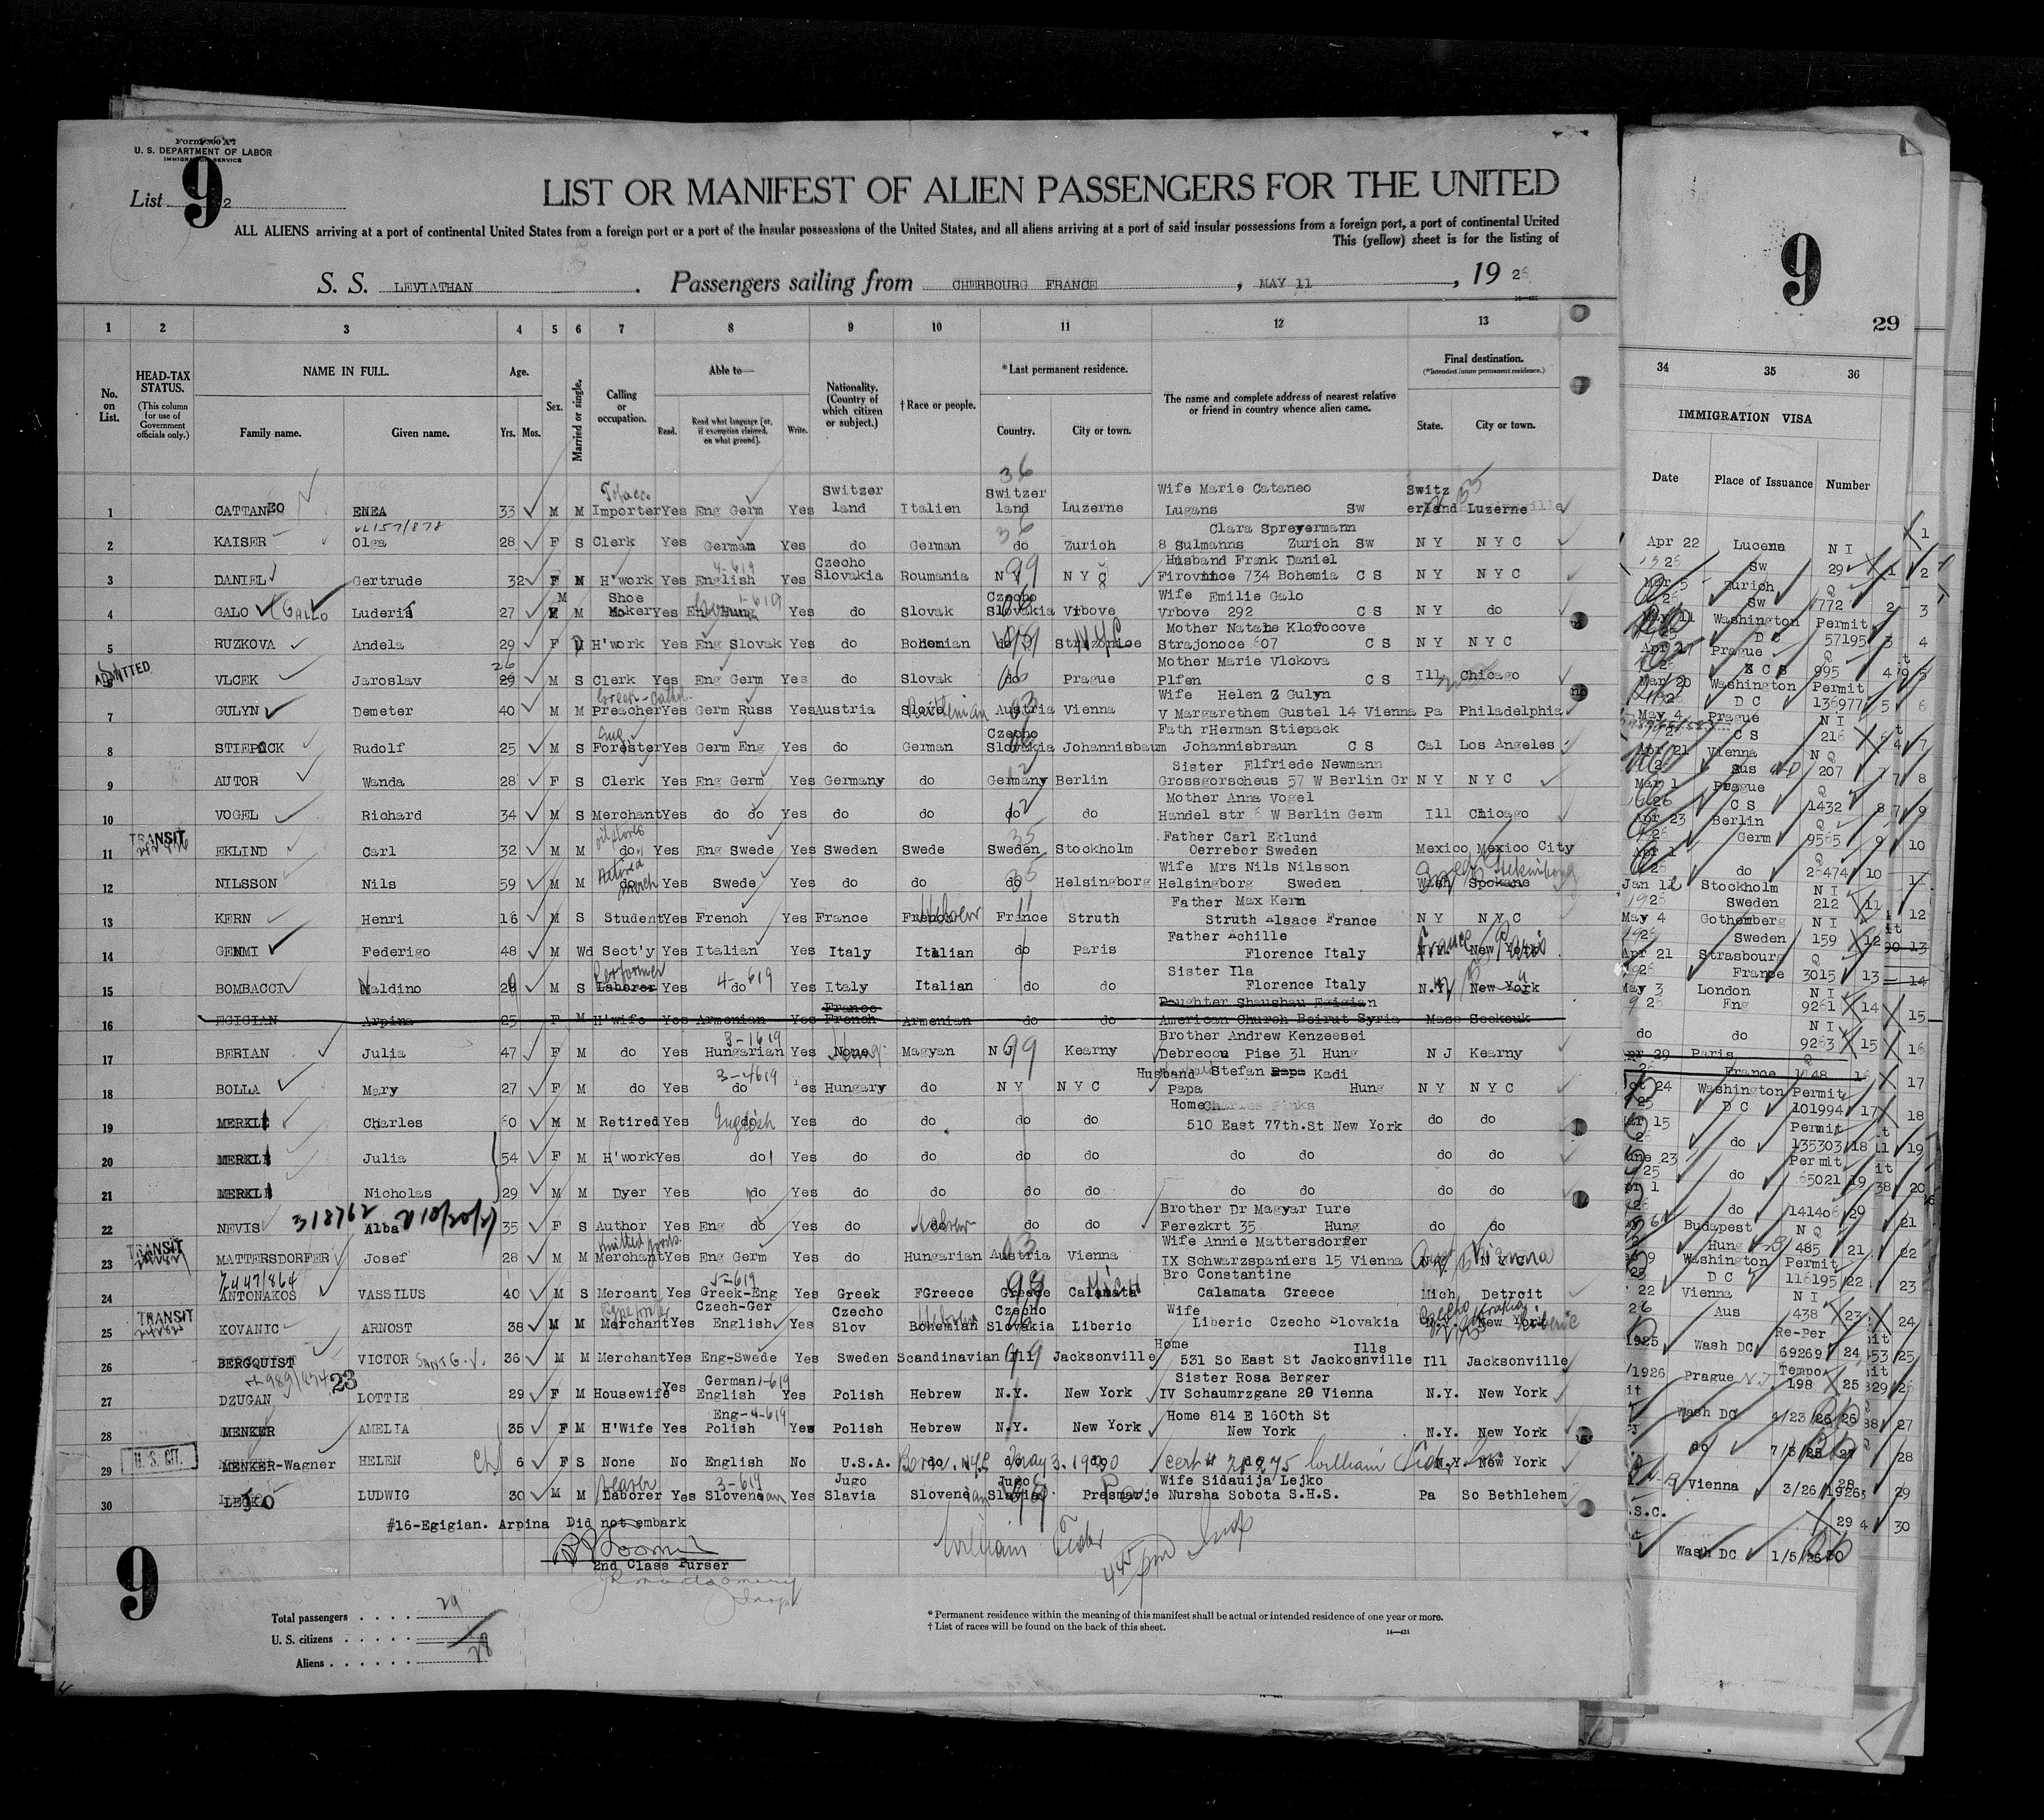 Form 500 A
U. S. DEPARTMENT OF LABOR
IMMIGRATION SERVICE
List 9 2
LIST OR MANIFEST OF ALIEN PASSENGERS FOR THE UNITED
ALL ALIENS arriving at a port of continental United States from a foreign port or a port of the insular possessions of the United States, and all aliens arriving at a port of said insular possessions from a foreign port, a port of continental United
This (yellow) sheet is for the listing of
S. S. LEVIATHAN . Passengers sailing from CHERBOURG FRANCE , MAY 11 , 19 26
1 2 3 4 5 6 7 8 9 10 11 12 13
No. on List.
HEAD-TAX STATUS. (This column for use of Government officials only.)
NAME IN FULL.
Family name. Given name.
Age. Yrs. Mos.
Sex.
Married or single.
Calling or occupation.
Able to—
Read. Read what language [or, if exemption claimed, on what ground]. Write.
Nationality. (Country of which citizen or subject.)
† Race or people.
*Last permanent residence.
Country. City or town.
The name and complete address of nearest relative or friend in country whence alien came.
Final destination.
(*Intended future permanent residence.)
State. City or town.
36
1 CATTANEO ENEA 33 M M Importer Yes Eng Germ Yes Switzer land Italien Switzer land Luzerne Wife Marie Cataneo Lugans Sw Switz erland Luzerne
2 KAISER Olga 28 F S Clerk Yes German Yes do German do Zurich Clara Spreyermann 8 Sulmanns Zurich Sw N Y N Y C
3 DANIEL Gertrude 32 F M H'work Yes English Yes Czecho Slovakia Roumania N Y N Y C Husband Frank Daniel 734 Bohemia C S NY N Y C
4 GALO (GALLO Luderis 27 M M Shoe Maker Yes Eng Hung Yes do Slovak Czecho Slovakia Vrbove Wife Emilie Galo Vrbove 292 C S N Y do
5 RUZKOVA Andela 29 F H'work Yes Eng Slovak Yes do Bohemian do NYC Mother Natale Klofocove Strajonoce 607 C S NY N Y C
ADMITTED
6 VLCEK Jaroslav 26 29 M S Clerk Yes Eng Germ Yes do Slovak do Prague Mother Marie Vlckova Plfen C S Ill Chicago
7 GULYN Demeter 40 M M Greek-Cathol. Preacher Yes Germ Russ Yes Austria Austria Vienna Wife Helen Z Gulyn V Margarethem Gustel 14 Vienna Pa Philadelphia
8 STIEPOCK Rudolf 25 M S Forester Yes Germ Eng Yes do German Czecho Slovakia Johannisbaum Fath rHerman Stiepack Johannisbraun C S Cal Los Angeles
9 AUTOR Wanda 28 F S Clerk Yes Eng Germ Yes Germany do Germany Berlin Sister Elfriede Newmann Grossgorscheus 57 W Berlin Gr N Y N Y C
10 VOGEL Richard 34 M S Merchant Yes do do Yes do do do do Mother Anna Vogel Handel str 6 W Berlin Germ Ill Chicago
TRANSIT
11 EKLIND Carl 32 M M do Yes Eng Swede Yes Sweden Swede Sweden Stockholm Father Carl Eklund Oerrebor Sweden Mexico Mexico City
12 NILSSON Nils 59 M M Retired Merch Yes Swede Yes do do do Helsingborg Wife Mrs Nils Nilsson Helsingborg Sweden Spokane
13 KERN Henri 16 M S Student Yes French Yes France French Hebrew France Struth Father Max Kern Struth Alsace France N Y N Y C
14 GEMMI Federigo 48 M Wd Sect'y Yes Italian Yes Italy Italian do Paris Father Achille Florence Italy France Paris New York
15 BOMBACCI Naldino 28 M S Performer Laborer Yes do 4-619 Yes Italy Italian do do Sister Ila Florence Italy N.Y. New York
16 EGIGIAN Arpina 25 F M H'wife Yes Armenian Yes France French Armenian do do Daughter Shaushau Egigian American Church Beirut Syria Mass Seekouk
17 BERIAN Julia 47 F M do Yes Hungarian 3-1619 Yes None Hung. Magyan N J 99 Kearny Brother Andrew Kenzeesei Debrecou Pise 31 Hung N J Kearny
18 BOLLA Mary 27 F M do Yes do 3-4619 Yes Hungary do N Y N Y C Husband Stefan Kadi Papa Hung N Y N Y C
19 MERKLE Charles 60 M M Retired Yes English Yes do do do do Home 510 East 77th.St New York do do
20 MERKLE Julia 54 F M H'work Yes do Yes do do do do do do do do
21 MERKLE Nicholas 29 M M Dyer Yes do Yes do do do do do do do do
22 NEVIS 318762 Alba 35 F S Author Yes Eng do Yes do Hebrew do do Brother Dr Magyar Iure Ferezkrt 35 Hung do do
TRANSIT
23 MATTERSDORFER Josef 28 M M Knitted Goods. Merchant Yes Eng Germ Yes do Hungarian Austria Vienna Wife Annie Mattersdorger IX Schwarzspaniers 15 Vienna Vienna
24 ANTONAKOS VASSILUS 40 M S Mercant Yes Greek-Eng Yes Greek FGreece Greece Calamata Bro Constantine Calamata Greece Mich Detroit
TRANSIT
25 KOVANIC ARNOST 38 M M Merchant Yes Czech-Ger English Yes Czecho Slov Bohemian Czecho Slovakia Liberic Wife Liberic Czecho Slovakia N.Y. New York
26 BERGQUIST VICTOR 36 M M Merchant Yes Eng-Swede Yes Sweden Scandinavian Ill Jacksonville Home 531 So East St Jackosnville Ills Ill Jacksonville
27 DZUGAN 23 LOTTIE 29 F M Housewife Yes German English Yes Polish Hebrew N.Y. New York Sister Rosa Berger IV Schaumrzgane 29 Vienna N.Y. New York
28 MENKER AMELIA 35 F M H'Wife Yes Eng-4-619 Polish Yes Polish Hebrew N.Y. New York Home 814 E 160th St New York N.Y. New York
U. S. CIT.
29 MENKER-Wagner HELEN 6 F S None No English No U.S.A. do do do cert # William N.Y. New York
30 LEJKO LUDWIG 30 M M Weaver Laborer Yes 3-619 Slovenean Yes Jugo Slavia Slovene Jugo Slavia Presmarje Wife Sidauija Lejko Nursha Sobota S.H.S. Pa So Bethlehem
#16-Egigian. Arpina Did not embark
2nd Class Purser
9
Total passengers . . . . 29
U. S. citizens . . . . . 1
Aliens . . . . . . 28
* Permanent residence within the meaning of this manifest shall be actual or intended residence of one year or more.
† List of races will be found on the back of this sheet.
9
29
34 35 36
IMMIGRATION VISA
Date Place of Issuance Number
Apr 22 Lucena Sw N I 29
Mar 5 Zurich Sw Q 772
May 11 Washington D C Permit 57195
Apr 27 Prague C S Q 995
Mar 20 Washington D C Permit 136977
May 4 Prague C S N I 216
Apr 21 Vienna N Q 207
Mar 1 Prague C S Q 1432
Apr 23 Berlin Germ Q 9565
Apr 1 do Q 26474
Jan 12 Stockholm Sweden N I 212
May 4 Gothemberg Sweden N I 159
Apr 21 Strasbourg France Q 3015
May 3 London Eng N I 9261
do do N I 9263
Apr 29 Paris France Q 1148
Oct 24 Washington D C Permit 101994
Apr 15 do Permit 135303
June 23 do Permit 65021
Apr 1 do 141406
Budapest Hung N Q 485
Washington D C Permit 116195
22 Vienna Aus N I 438
1925 Wash DC Re-Per 69269
/1926 Prague Tempo 198
Wash DC 4/23/26
do 7/3/25
Vienna 3/26/1926
Wash DC 1/5/26